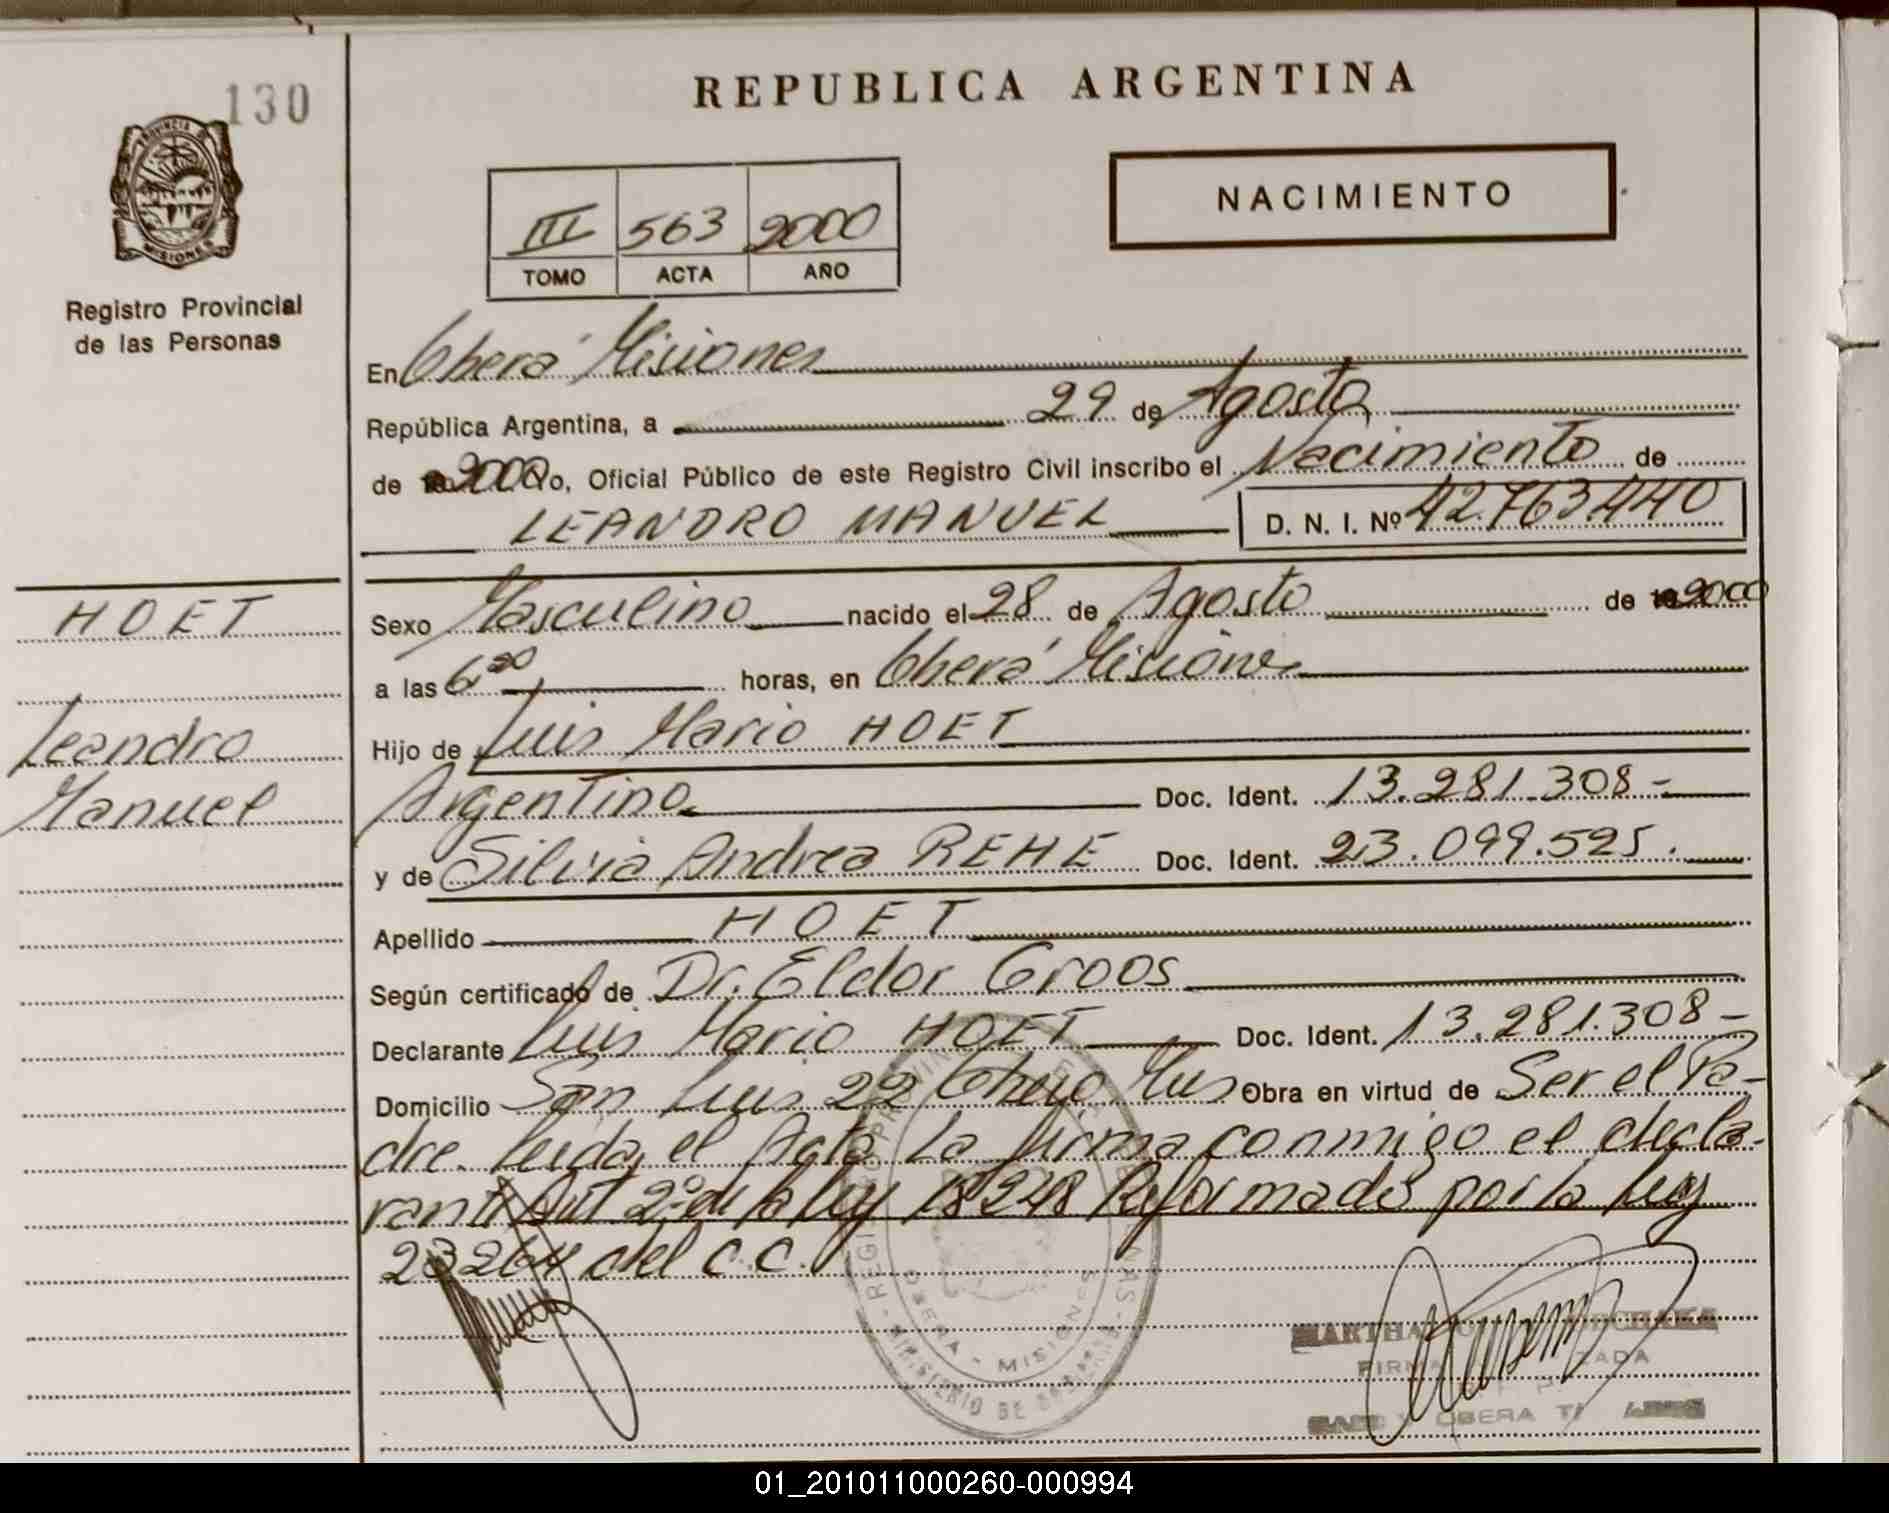 130
REPUBLICA ARGENTINA
PROVINCIA DE
MISIONES
Registro Provincial
de las Personas
III 563 2000
TOMO ACTA AÑO
NACIMIENTO
En Oberá Misiones
República Argentina, a 29 de Agosto
de 2000 Yo, Oficial Público de este Registro Civil inscribo el Nacimiento de
LEANDRO MANUEL D. N. I. Nº 42.763.440
HOET
Leandro
Manuel
Sexo Masculino nacido el 28 de Agosto de 2000
a las 6 horas, en Oberá Misiones
Hijo de Luis Mario HOET
Argentino Doc. Ident. 13.281.308-
y de Silvia Andrea REHE Doc. Ident. 23.099.525.
Apellido HOET
Según certificado de Dr. Eldor Groos
Declarante Luis Mario HOET Doc. Ident. 13.281.308-
Domicilio San Luis 22 Oberá Mnes Obra en virtud de Ser el Pa-
dre. leida el Acta La firma conmigo el decla-
rante Art 2º de la ley 18248 Reformado por la ley
23264 del C.C.
OBERA - MISIONES
MINISTERIO DE
MARTHA
FIRMA
OBERA
01_201011000260-000994